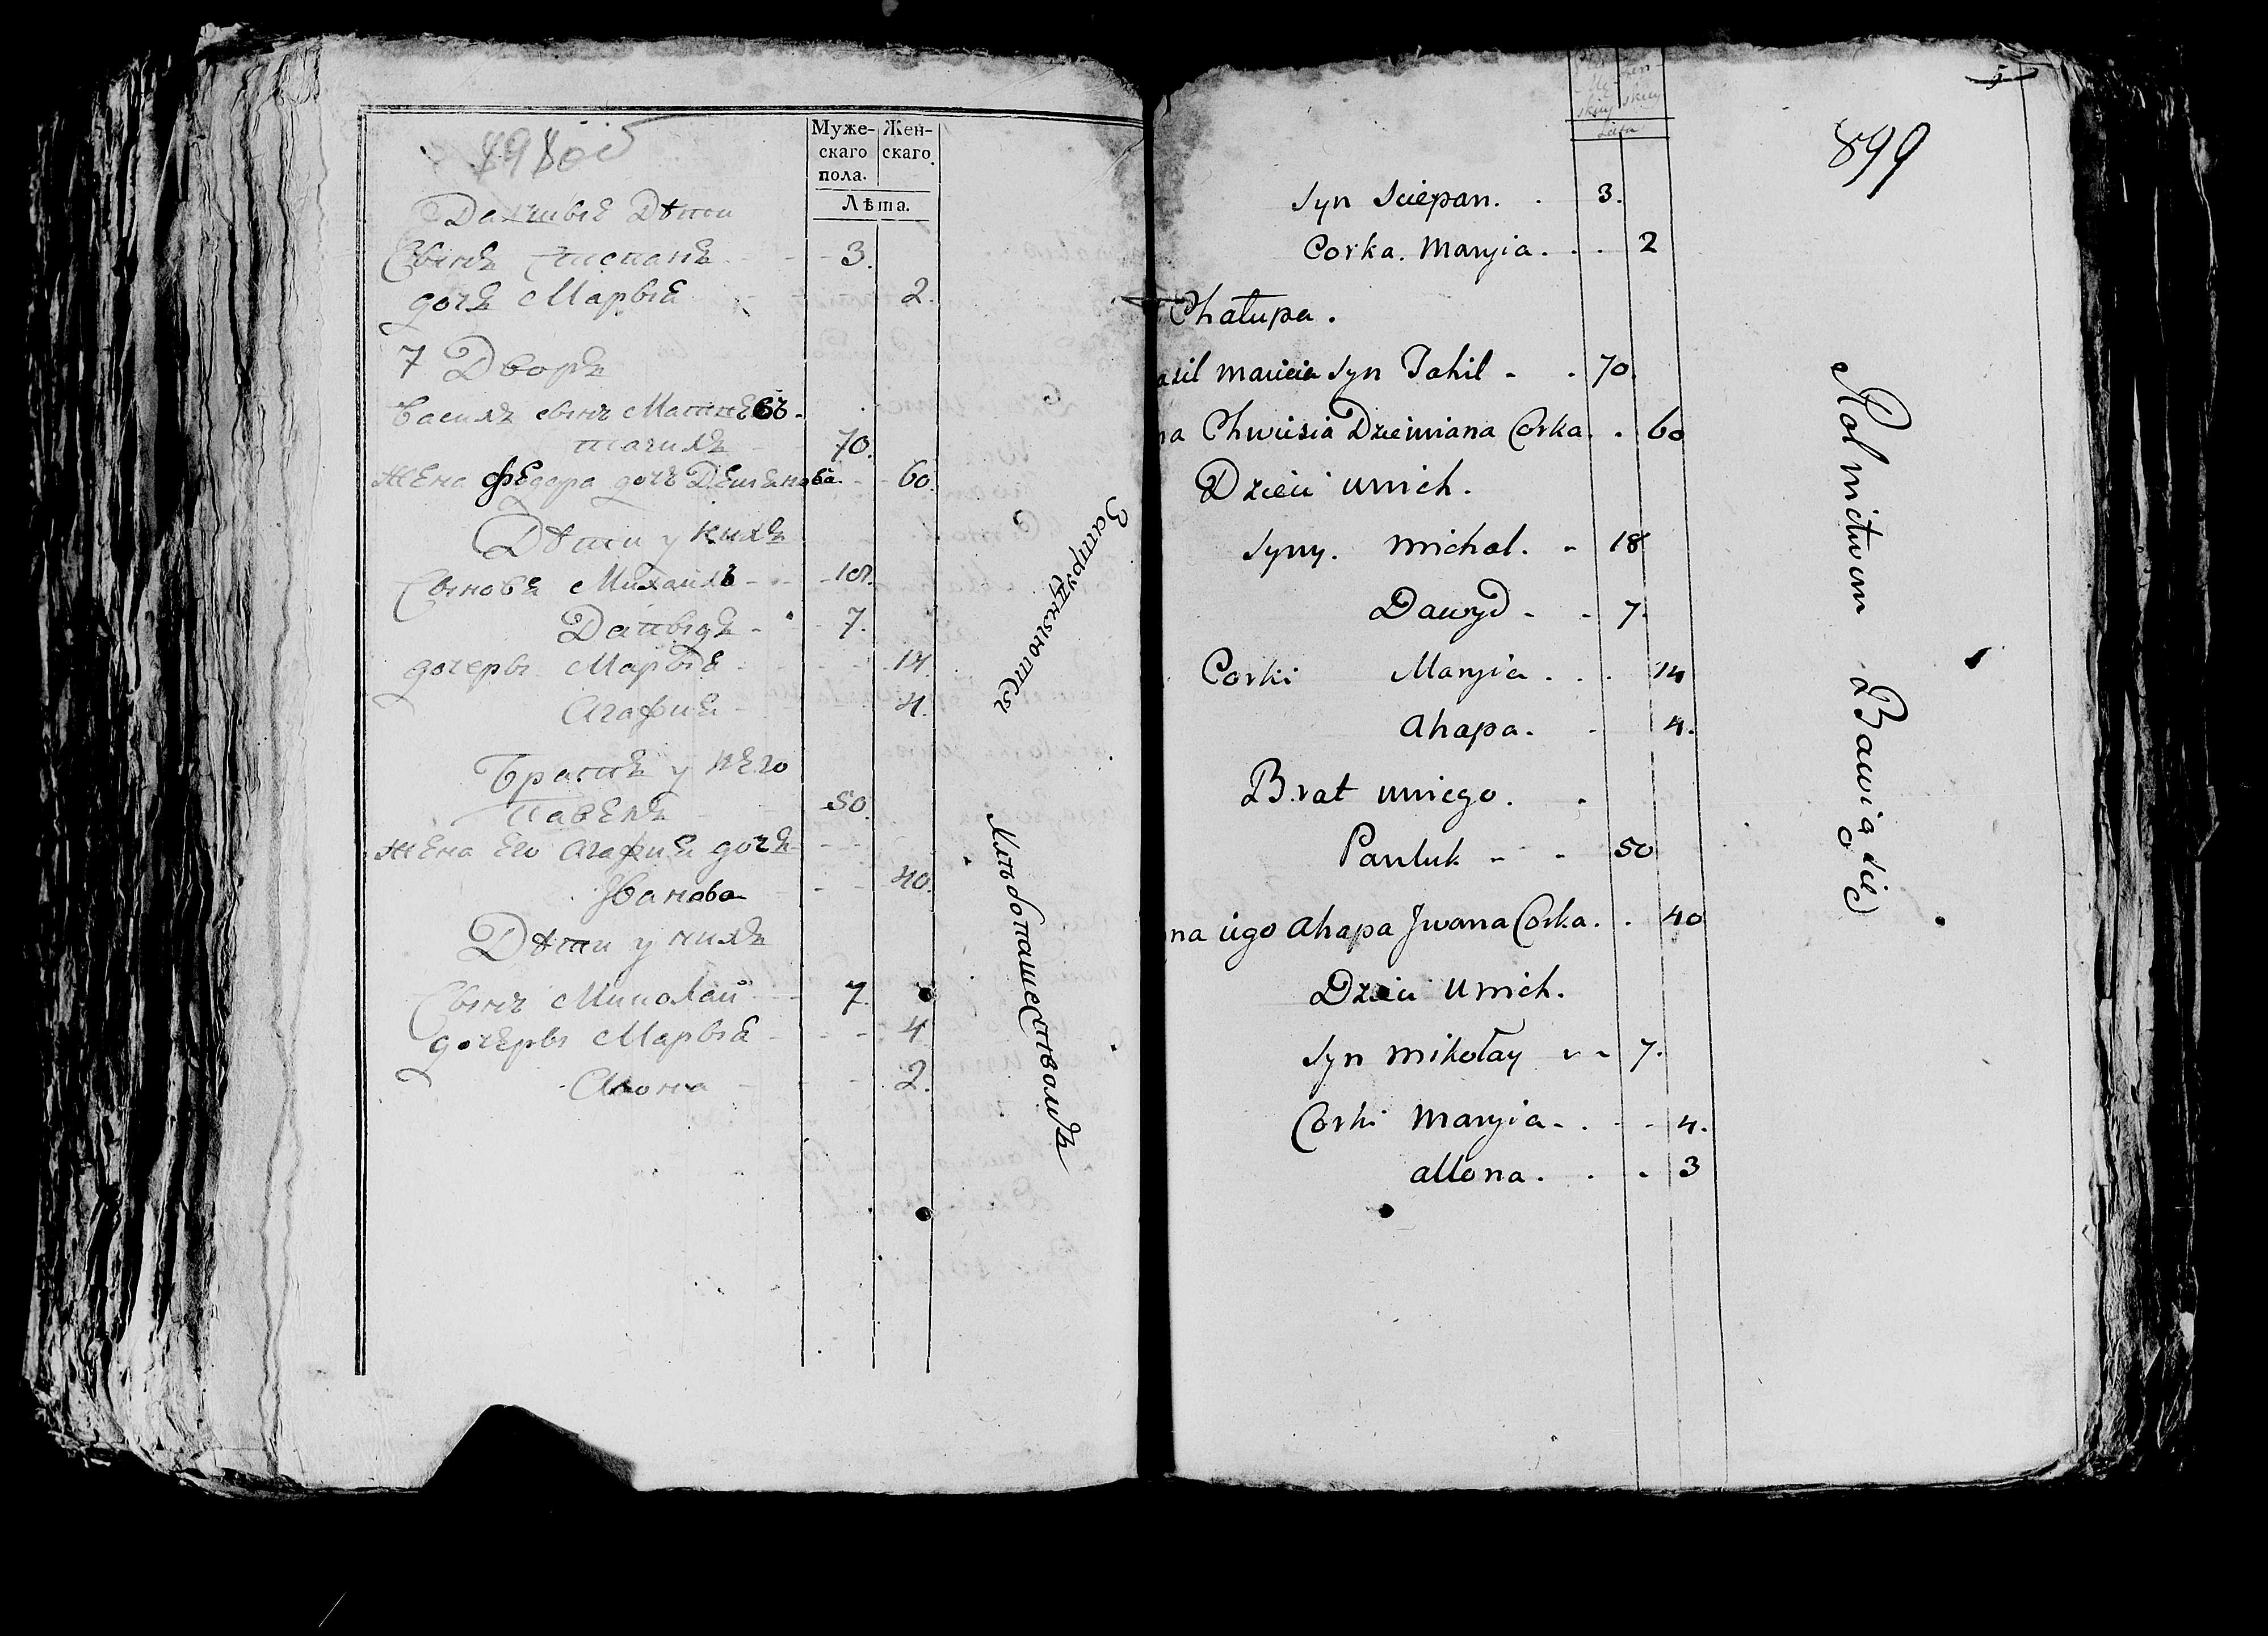 898 об
Муже-
скаго
пола.
Жен-
скаго.
Лѣта.
Дѣти
Сынъ Степанъ 3.
дочь Марья 2.
7 Дворъ
Василь сынъ Матвѣевъ
Тагиль 70.
Жена Федора дочь Демянова 60.
Дѣти у нихъ
Сыновья Михайлъ 18.
Давыдъ 7.
дочеры Марья 14.
Агафия 4.
Братъ у него
Павелъ 50.
Жена его Агафия дочь
Іванова 40.
Дѣти у нихъ
Сынъ Миколай 7.
дочеры Марья 4.
Алона 2.
Упражняются
Хлѣбопашествомъ
5
899
Męskiey
Żenskiey
Lata
Syn Sciepan. 3.
Corka. Maryia. 2
Chałupa.
asil Macieia Syn Tahil 70.
na Chwiesia Dziemiana Corka. 60
Dzieci unich.
Syny. Michal. 18
Dawyd 7.
Corki Maryia 14
Ahapa. 4.
Brat uniego.
Pauluk 50
na iego Ahapa Jwana Corka. 40
Dzieci unich.
Syn Mikołay 7.
Corki Maryia 4.
allona. 3
Rolnictwem Bawią się